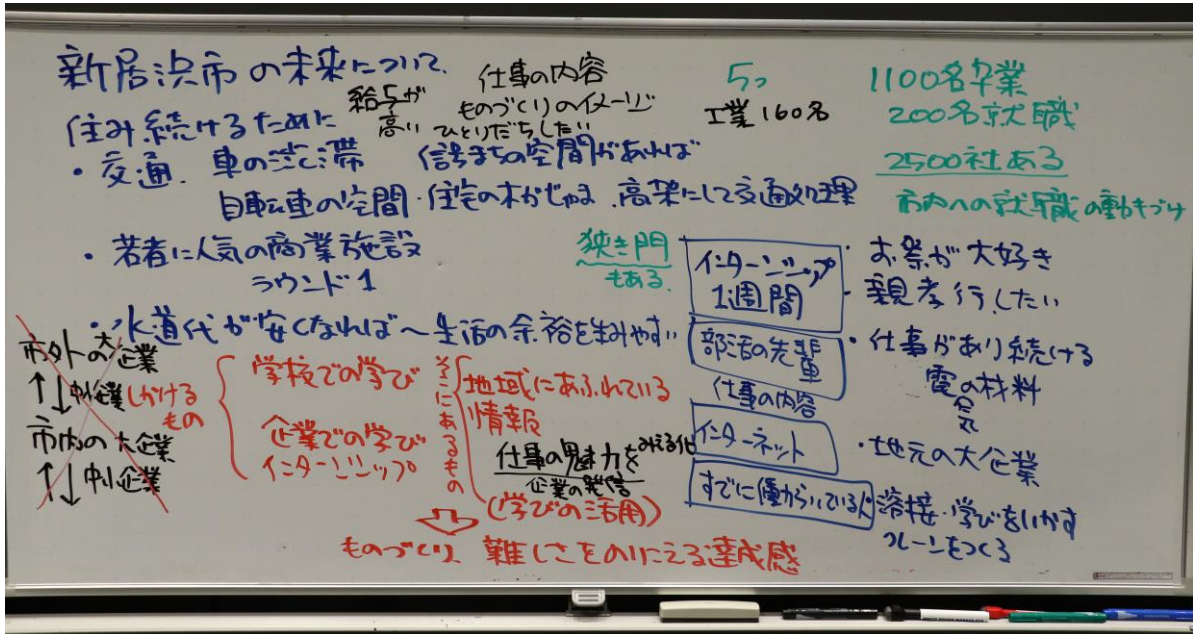 新居浜市の未来について
住み続けるために
給与が
高い
仕事の内容
ものづくりのイメージ
ひとりだちしたい
5つ
工業160名
1100名卒業
200名就職
2500社ある
市内への就職の動きづけ
・交通. 車の渋滞 信号まちの空間があれば
自転車の空間・住宅の木がじゃま.高架にして交通処理
・若者に人気の商業施設
ラウンド1
・水道代が安くなれば〜生活の余裕を生みやすい
狭き門
もある
インターンシップ
1週間
部活の先輩
仕事の内容
インターネット
すでに働からいている人
・お祭が大好き
・親孝行したい
・仕事があり続ける
電の材料
気
・地元の大企業
溶接・学びをいかす
クレーンをつくる
市外の大企業
↑↓中小企業
市内の大企業
↑↓中小企業
しかける
もの
学校での学び
企業での学び
インターンシップ
そこにあるもの
地域にあふれている
情報
仕事の魅力をみえる化
企業の発信
(学びの活用)
ものづくり 難しさをのりこえる達成感